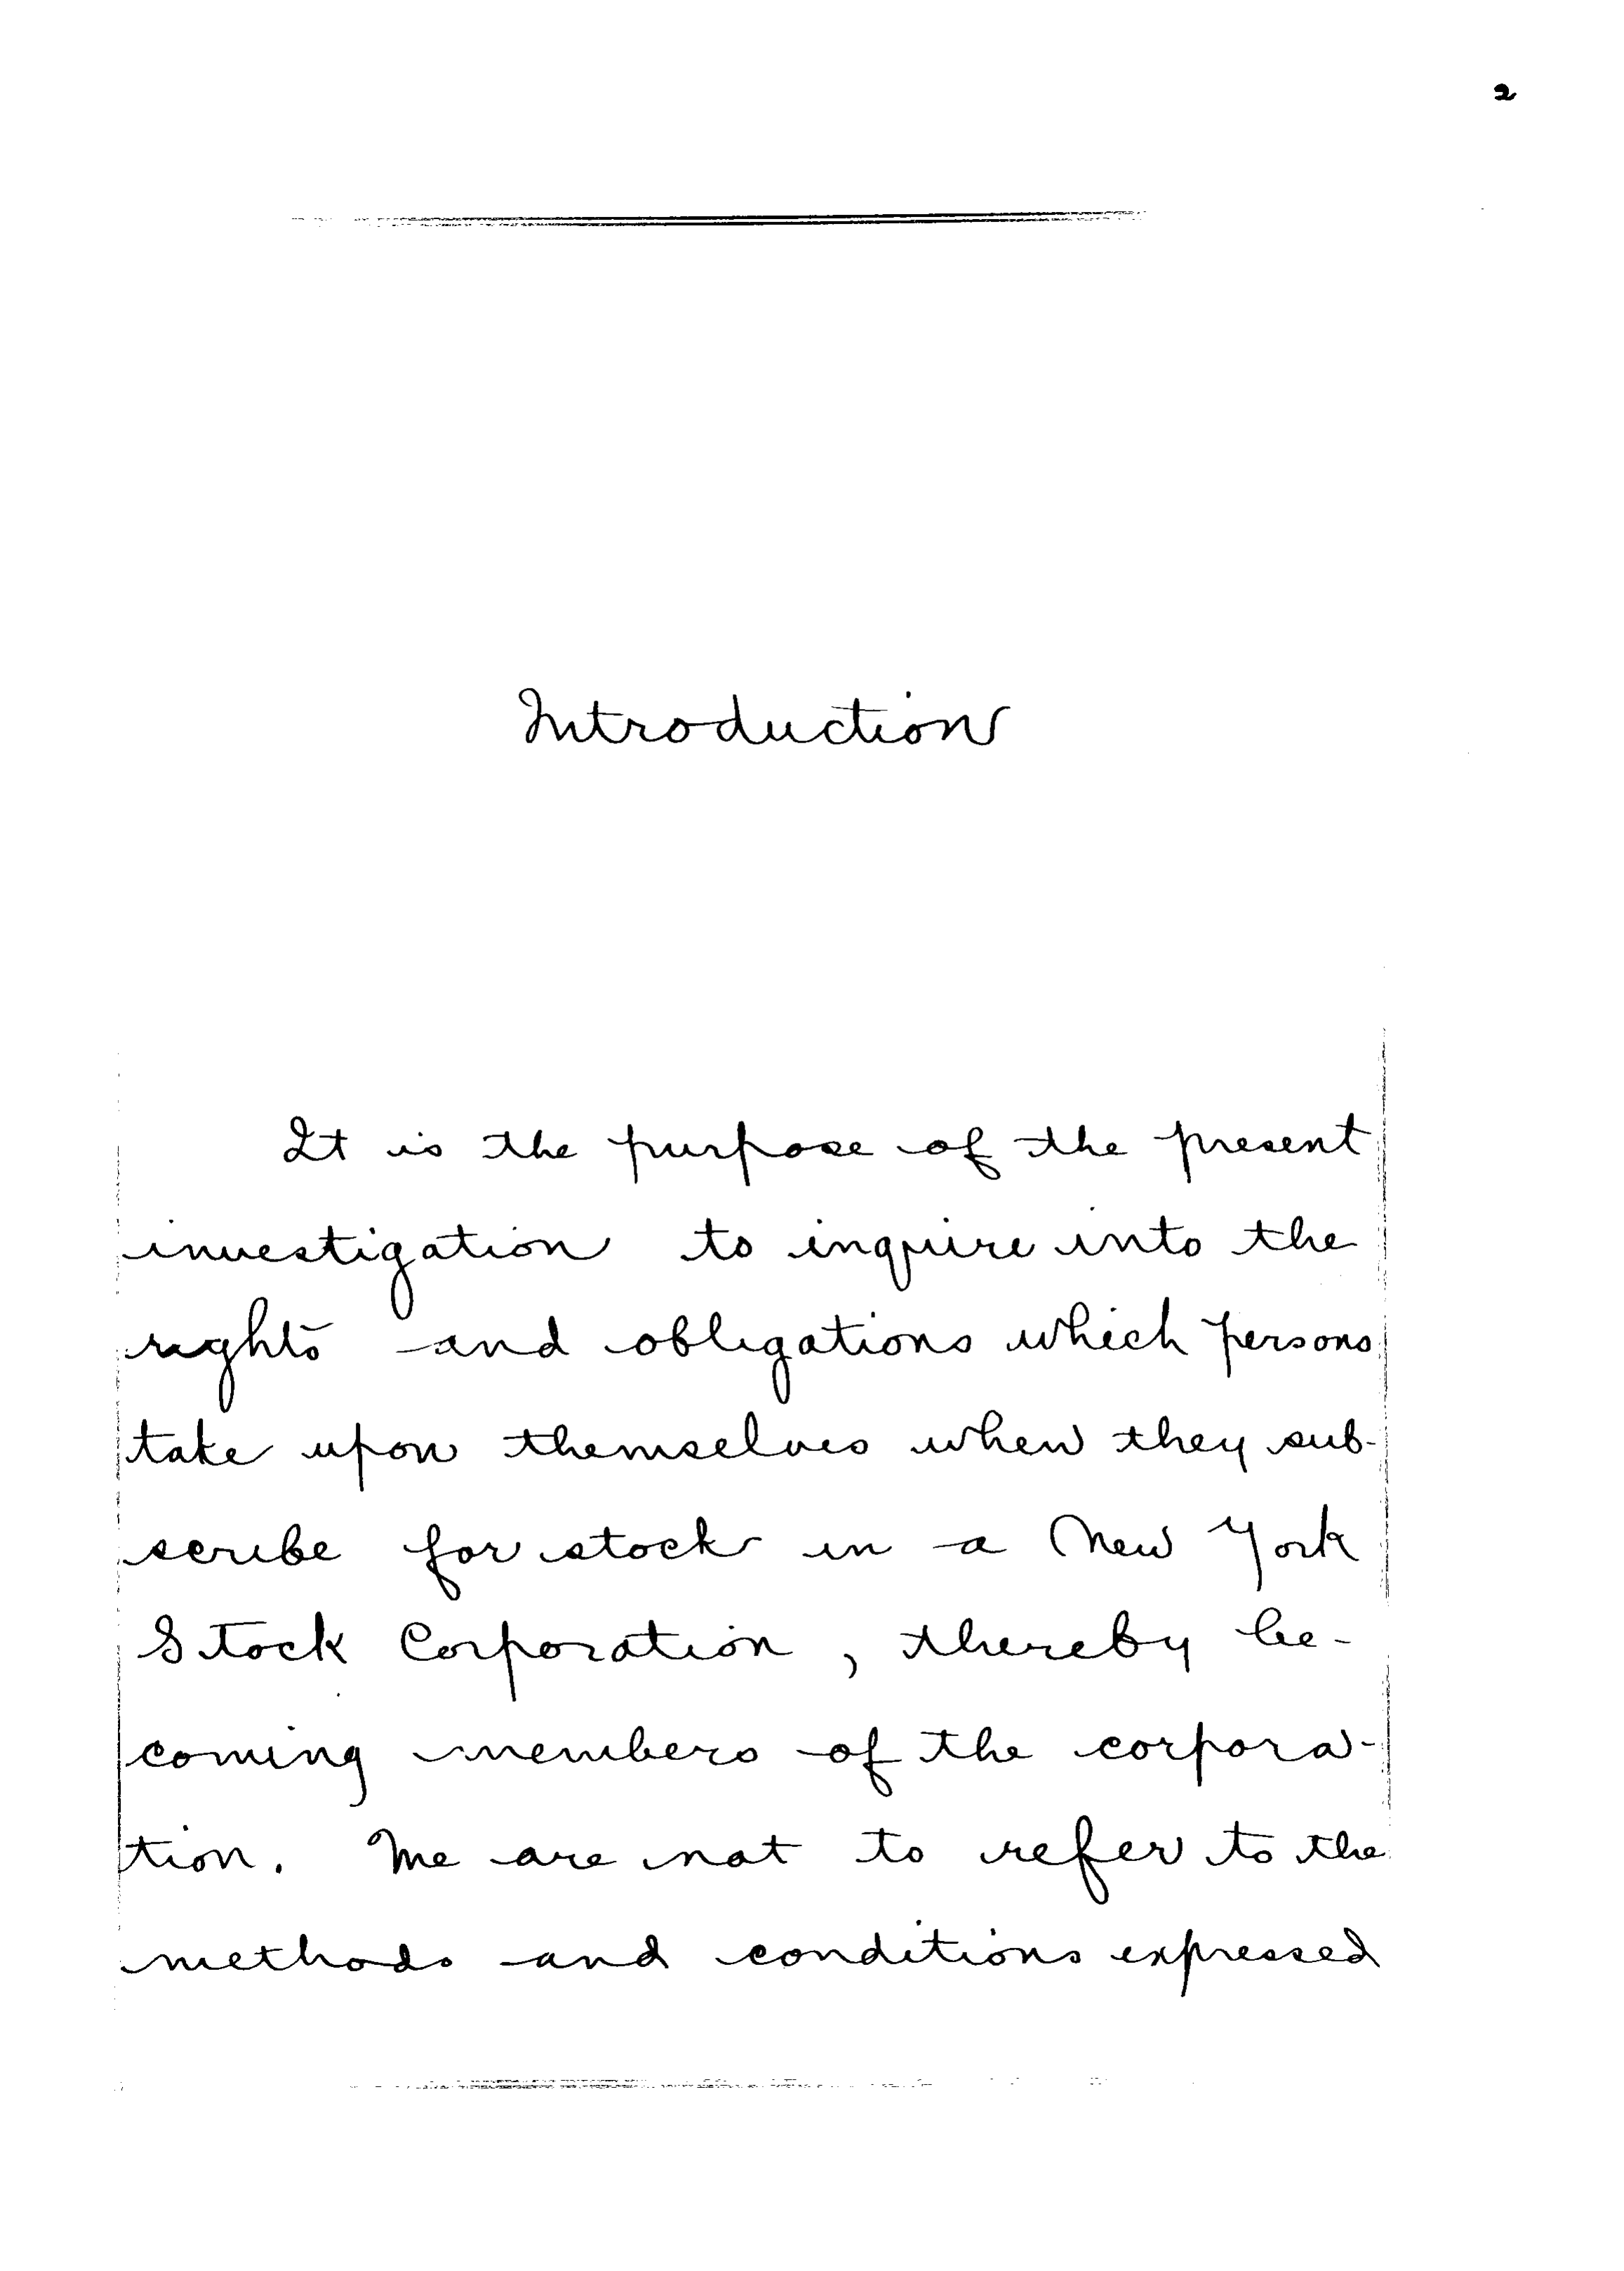 2
Introduction
It is the purpose of the present
investigation to inquire into the
rights and obligations which persons
take upon themselves when they sub-
scribe for stock in a New York
Stock Corporation, thereby be-
coming members of the corpora-
tion. We are not to refer to the
methods and conditions expressed